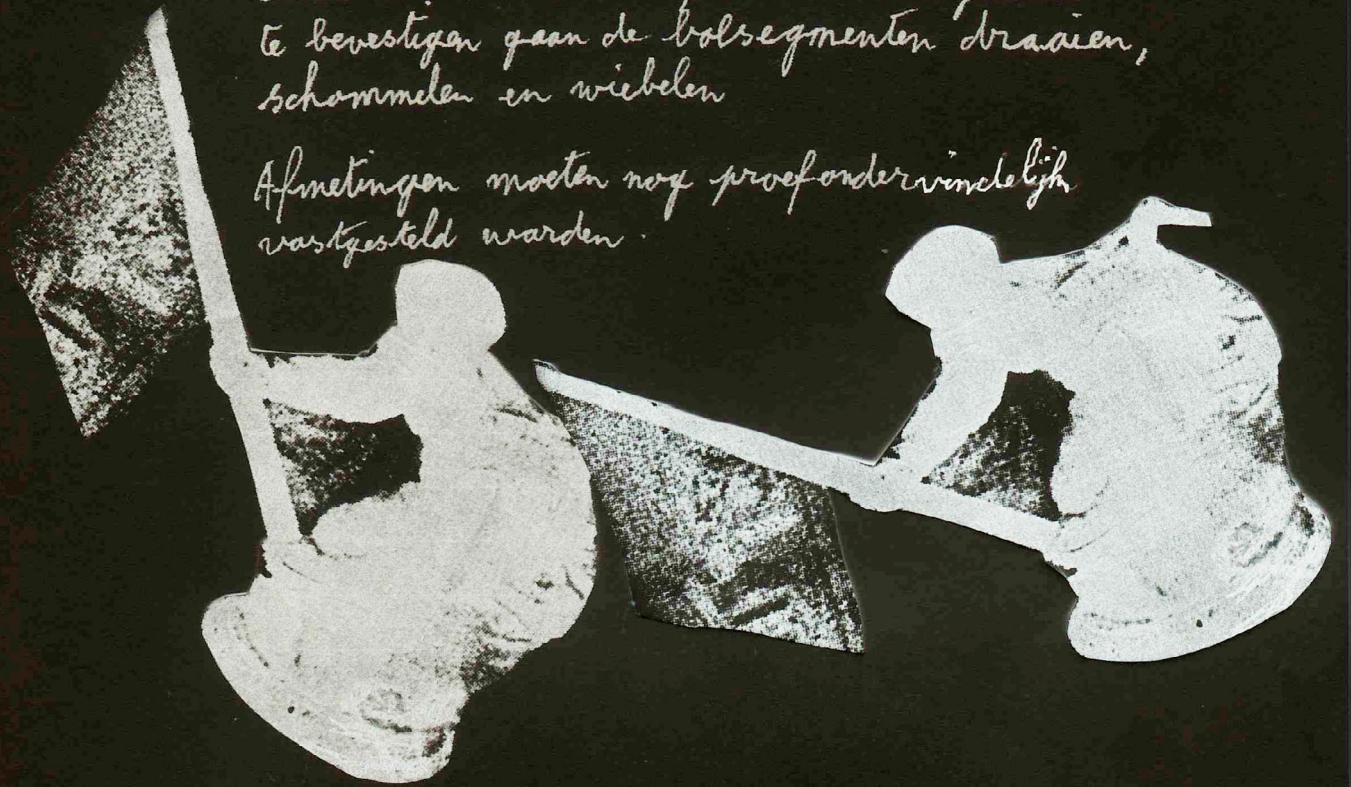 te bevestigen gaan de bolsegmenten draaien,
schommelen en wiebelen
Afmetingen moeten nog proefondervindelijk
vastgesteld worden.